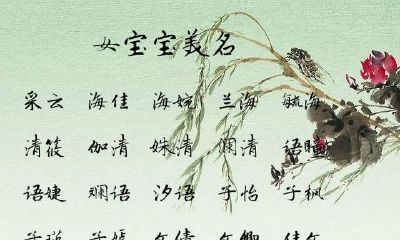 女宝宝美名
采云 海佳 海婉 兰海 毓海
清筱 伽清 姝清 澜清 语瞳
语婕 斓语 汐语 子怡 子枫